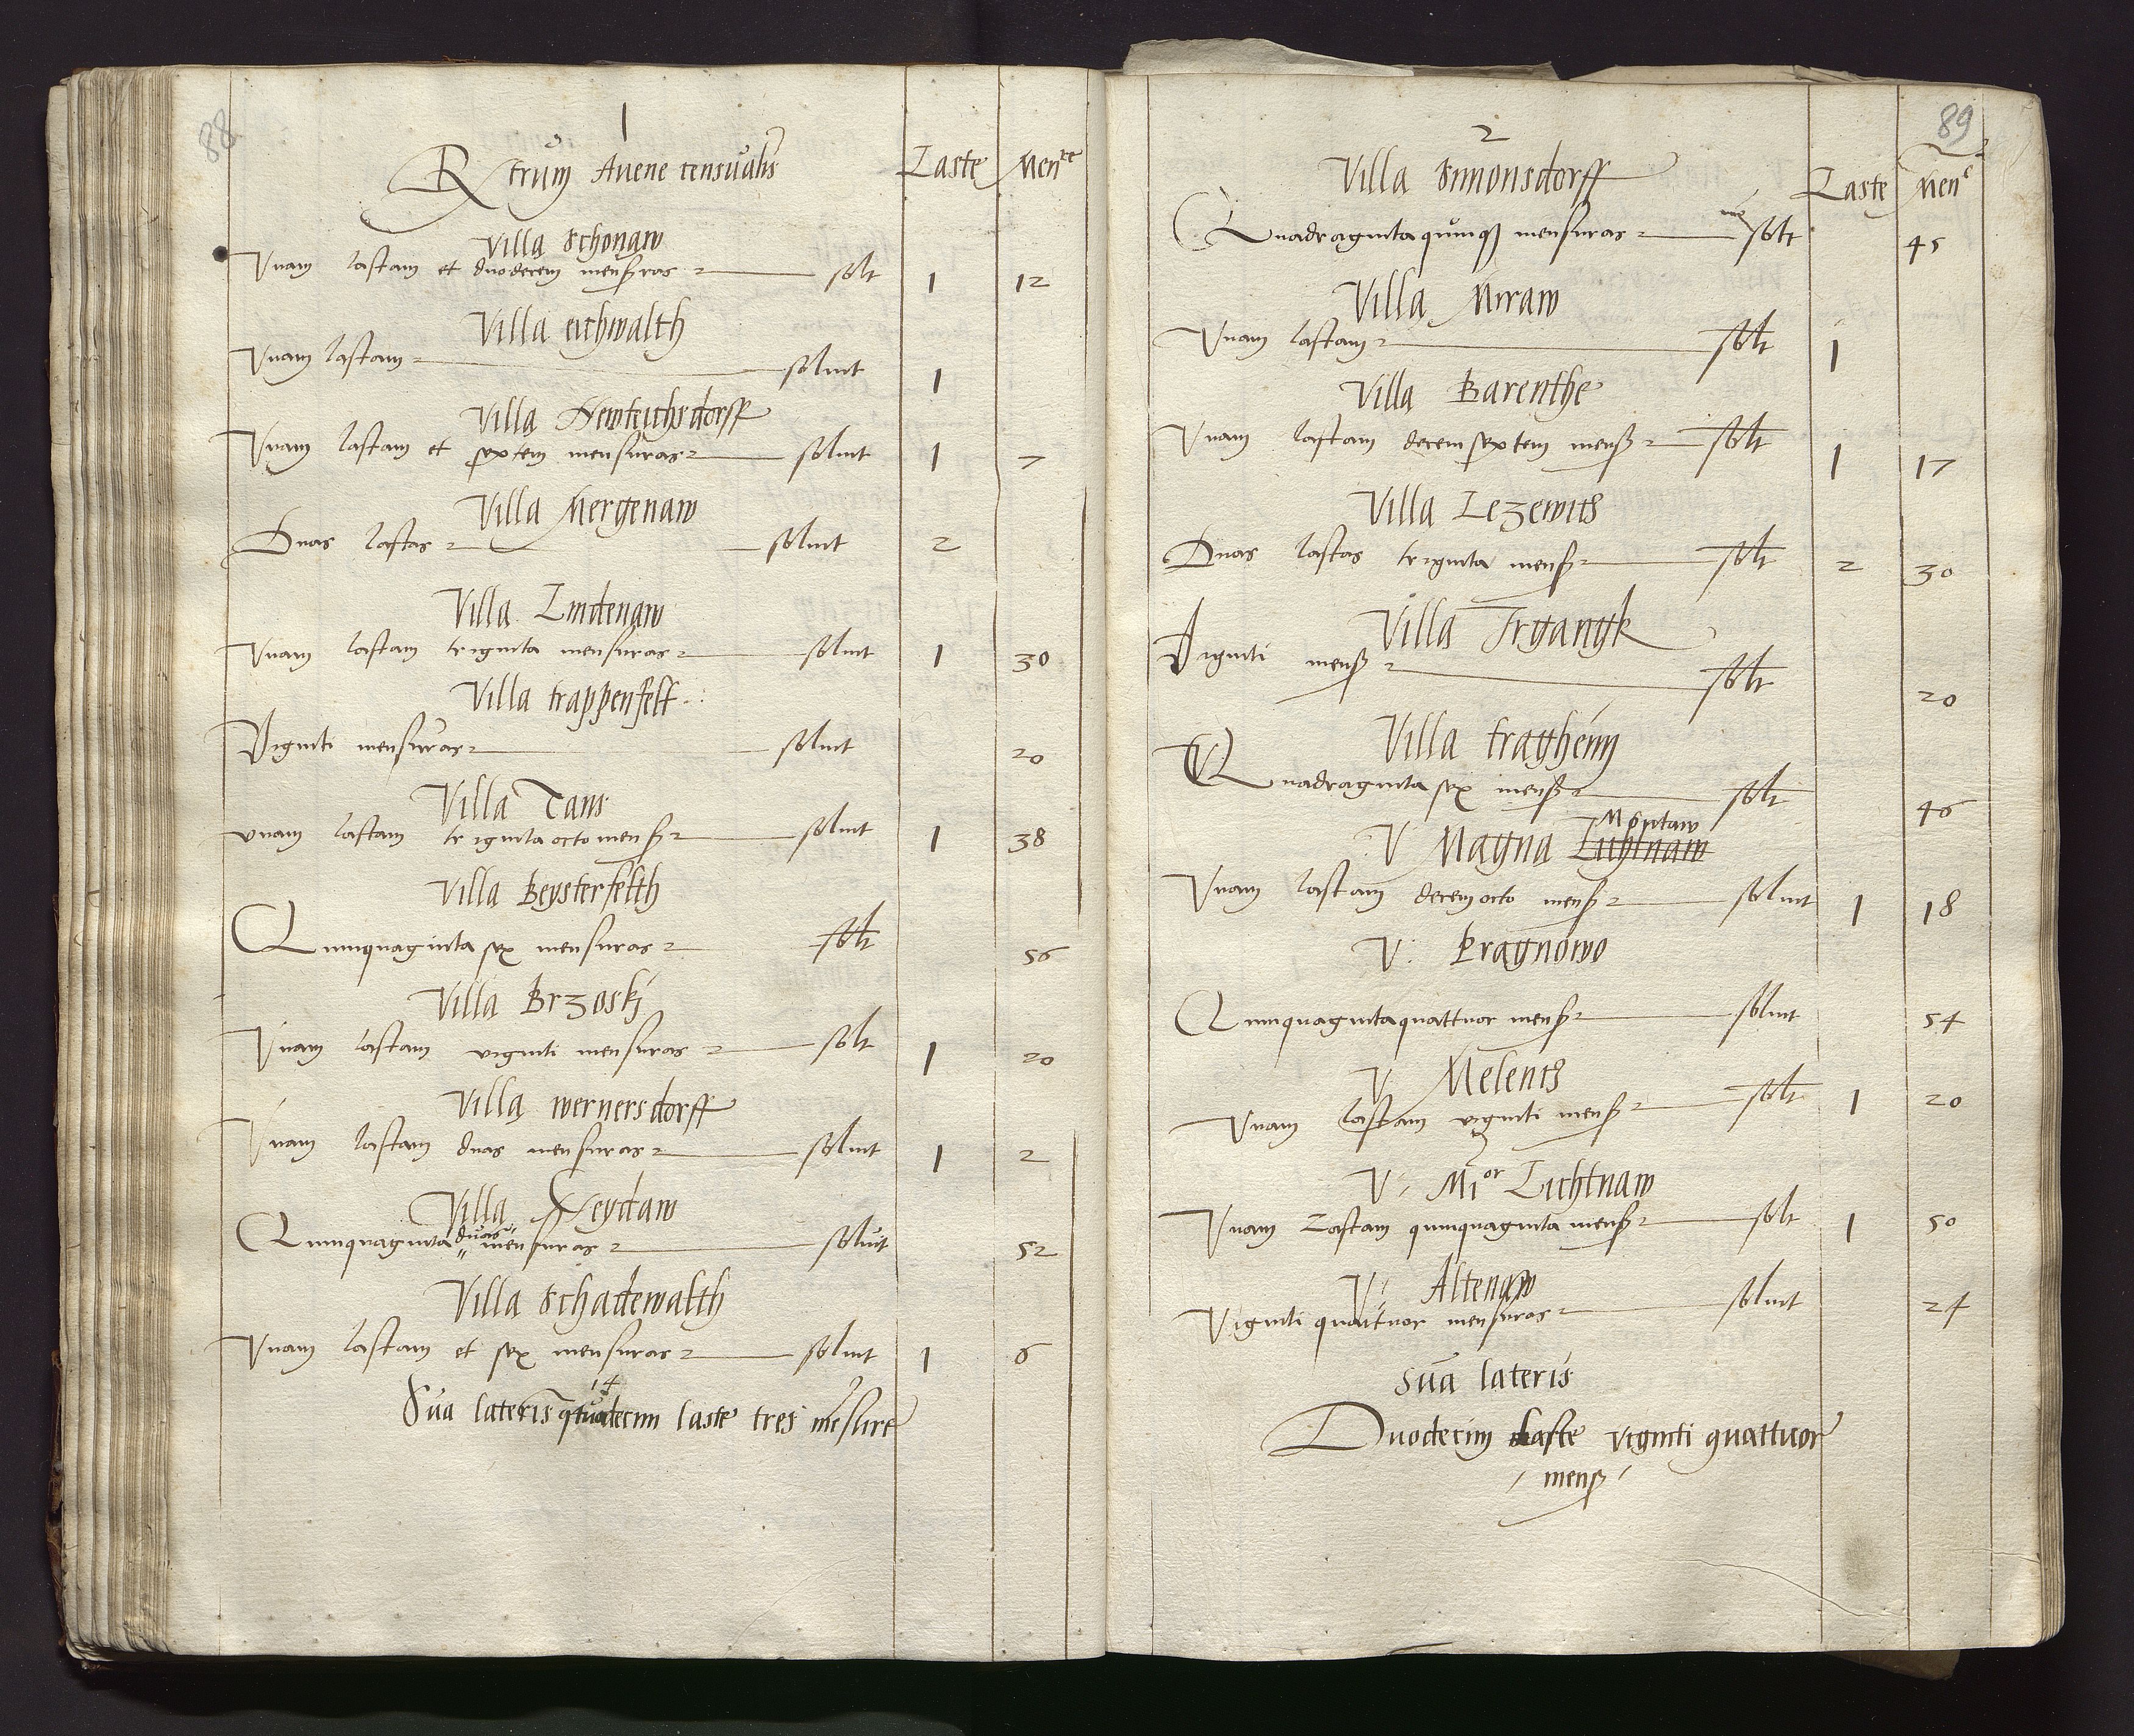 88
1
Rtrum Avene censualis Laste Menre
Villa Schonaw
Vnam lastam et duodecem mensuras solt 1 12
Villa eichwalth
Vnam lastam soluit 1
Villa Newteichsdorff
Vnam lastam et septem mensuras soluit 1 7
Villa Mergenaw
Duas lastas soluit 2
Villa Lindenaw
Vnam lastam triginta mensuras soluit 1 30
Villa trappenfelt
Viginti mensuras soluit 20
Villa Tans
vnam lastam triginta octo mens soluit 1 38
Villa Beysterfelth
Quinquaginta sex mensuras solt 56
Villa Brzoski
Vnam lastam viginti mensuras solt 1 20
Villa wernersdorff
Vnam lastam duas mensuras soluit 1 2
Villa Heydaw
Quinquaginta duas mensuras soluit 52
Villa Schadewalth
Vnam lastam et sex mensuras soluit 1 6
14
Sua lateris qtuadecim laste tres mesure
89
2
Villa Simonsdorff Laste Mens
Quadraginta quinq mensuras solt 45
Villa Miraw
Vnam lastam solt 1
Villa Barenthe
Vnam lastam decem septem mens solt 1 17
Villa Lezewits
Duas lastas triginta mens solt 2 30
Villa Irgangk
Viginti mens solt 20
Villa tragheim
Quadraginta sex mens solt 46
Montaw
V Magna Lichtnaw
Vnam lastam decem octo mens soluit 1 18
V. Bragnowo
Quinquaginta quattuor mens soluit 54
V Melents
Vnam lastam viginti mens solt 1 20
V. Mior Lichtnaw
Vnam Lastam quinquaginta mens solt 1 50
V. Altenaw
Viginti quattuor mensuras soluit 24
Sua lateris
Duodecim laste viginti quattuor
mens